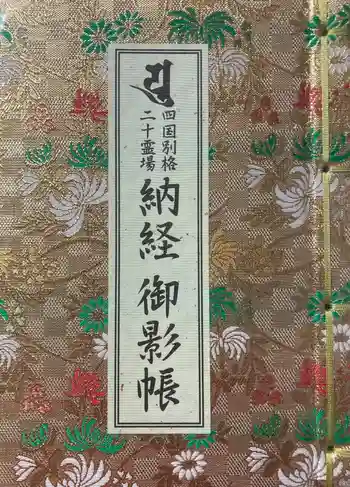 四国別格
二十霊場
納経 御影帳